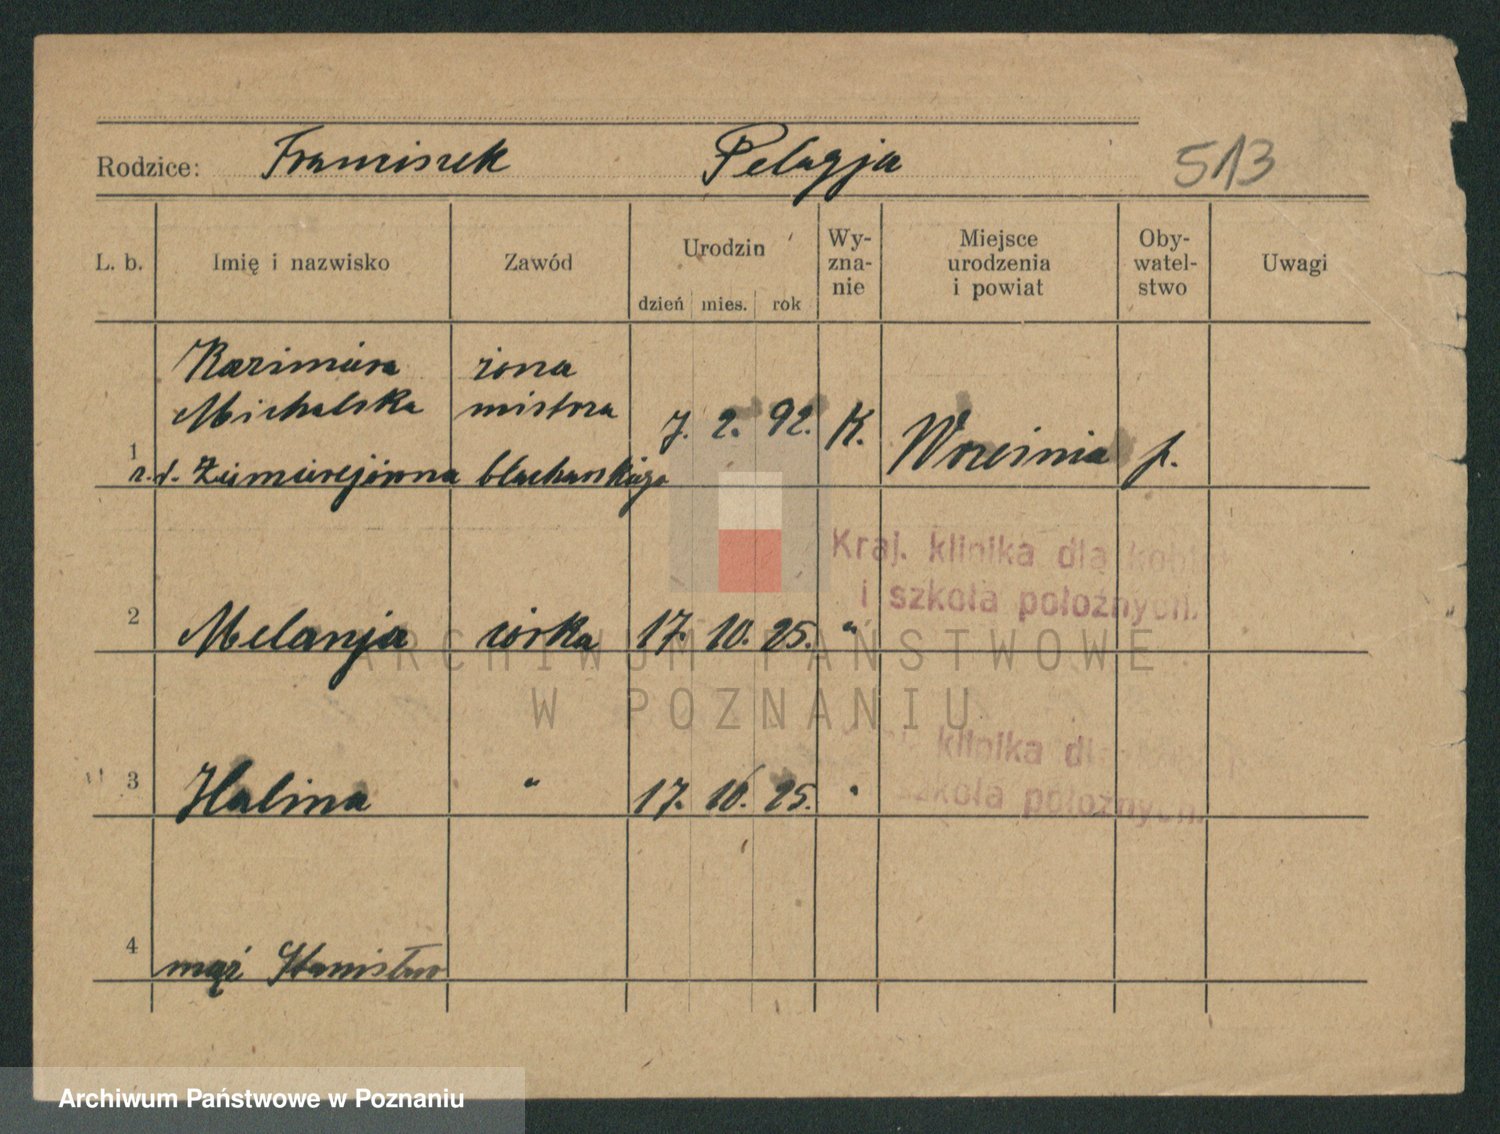 Rodzice: Franciszek Pelagja 513
L. b. Imię i nazwisko Zawód Urodzin dzień mies. rok Wy-zna-nie Miejsce urodzenia i powiat Oby-watel-stwo Uwagi
Kazimiera żona
Michalska mistrza
1 7. 2. 92. K. Września p.
z. d. blacharskiego
Kraj. klinika dla kobiet
i szkoła położnych.
2 Melanja córka 17. 10. 25. "
ARCHIWUM PAŃSTWOWE
W POZNANIU
klinika dla
szkoła położnych.
3 Halina " 17. 10. 25. "
4 mąż Stanisław
Archiwum Państwowe w Poznaniu